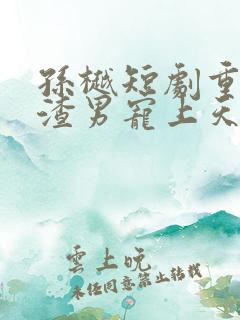 孫樾短劇重
渣男寵上天
雲上晚
未經同意禁止轉載